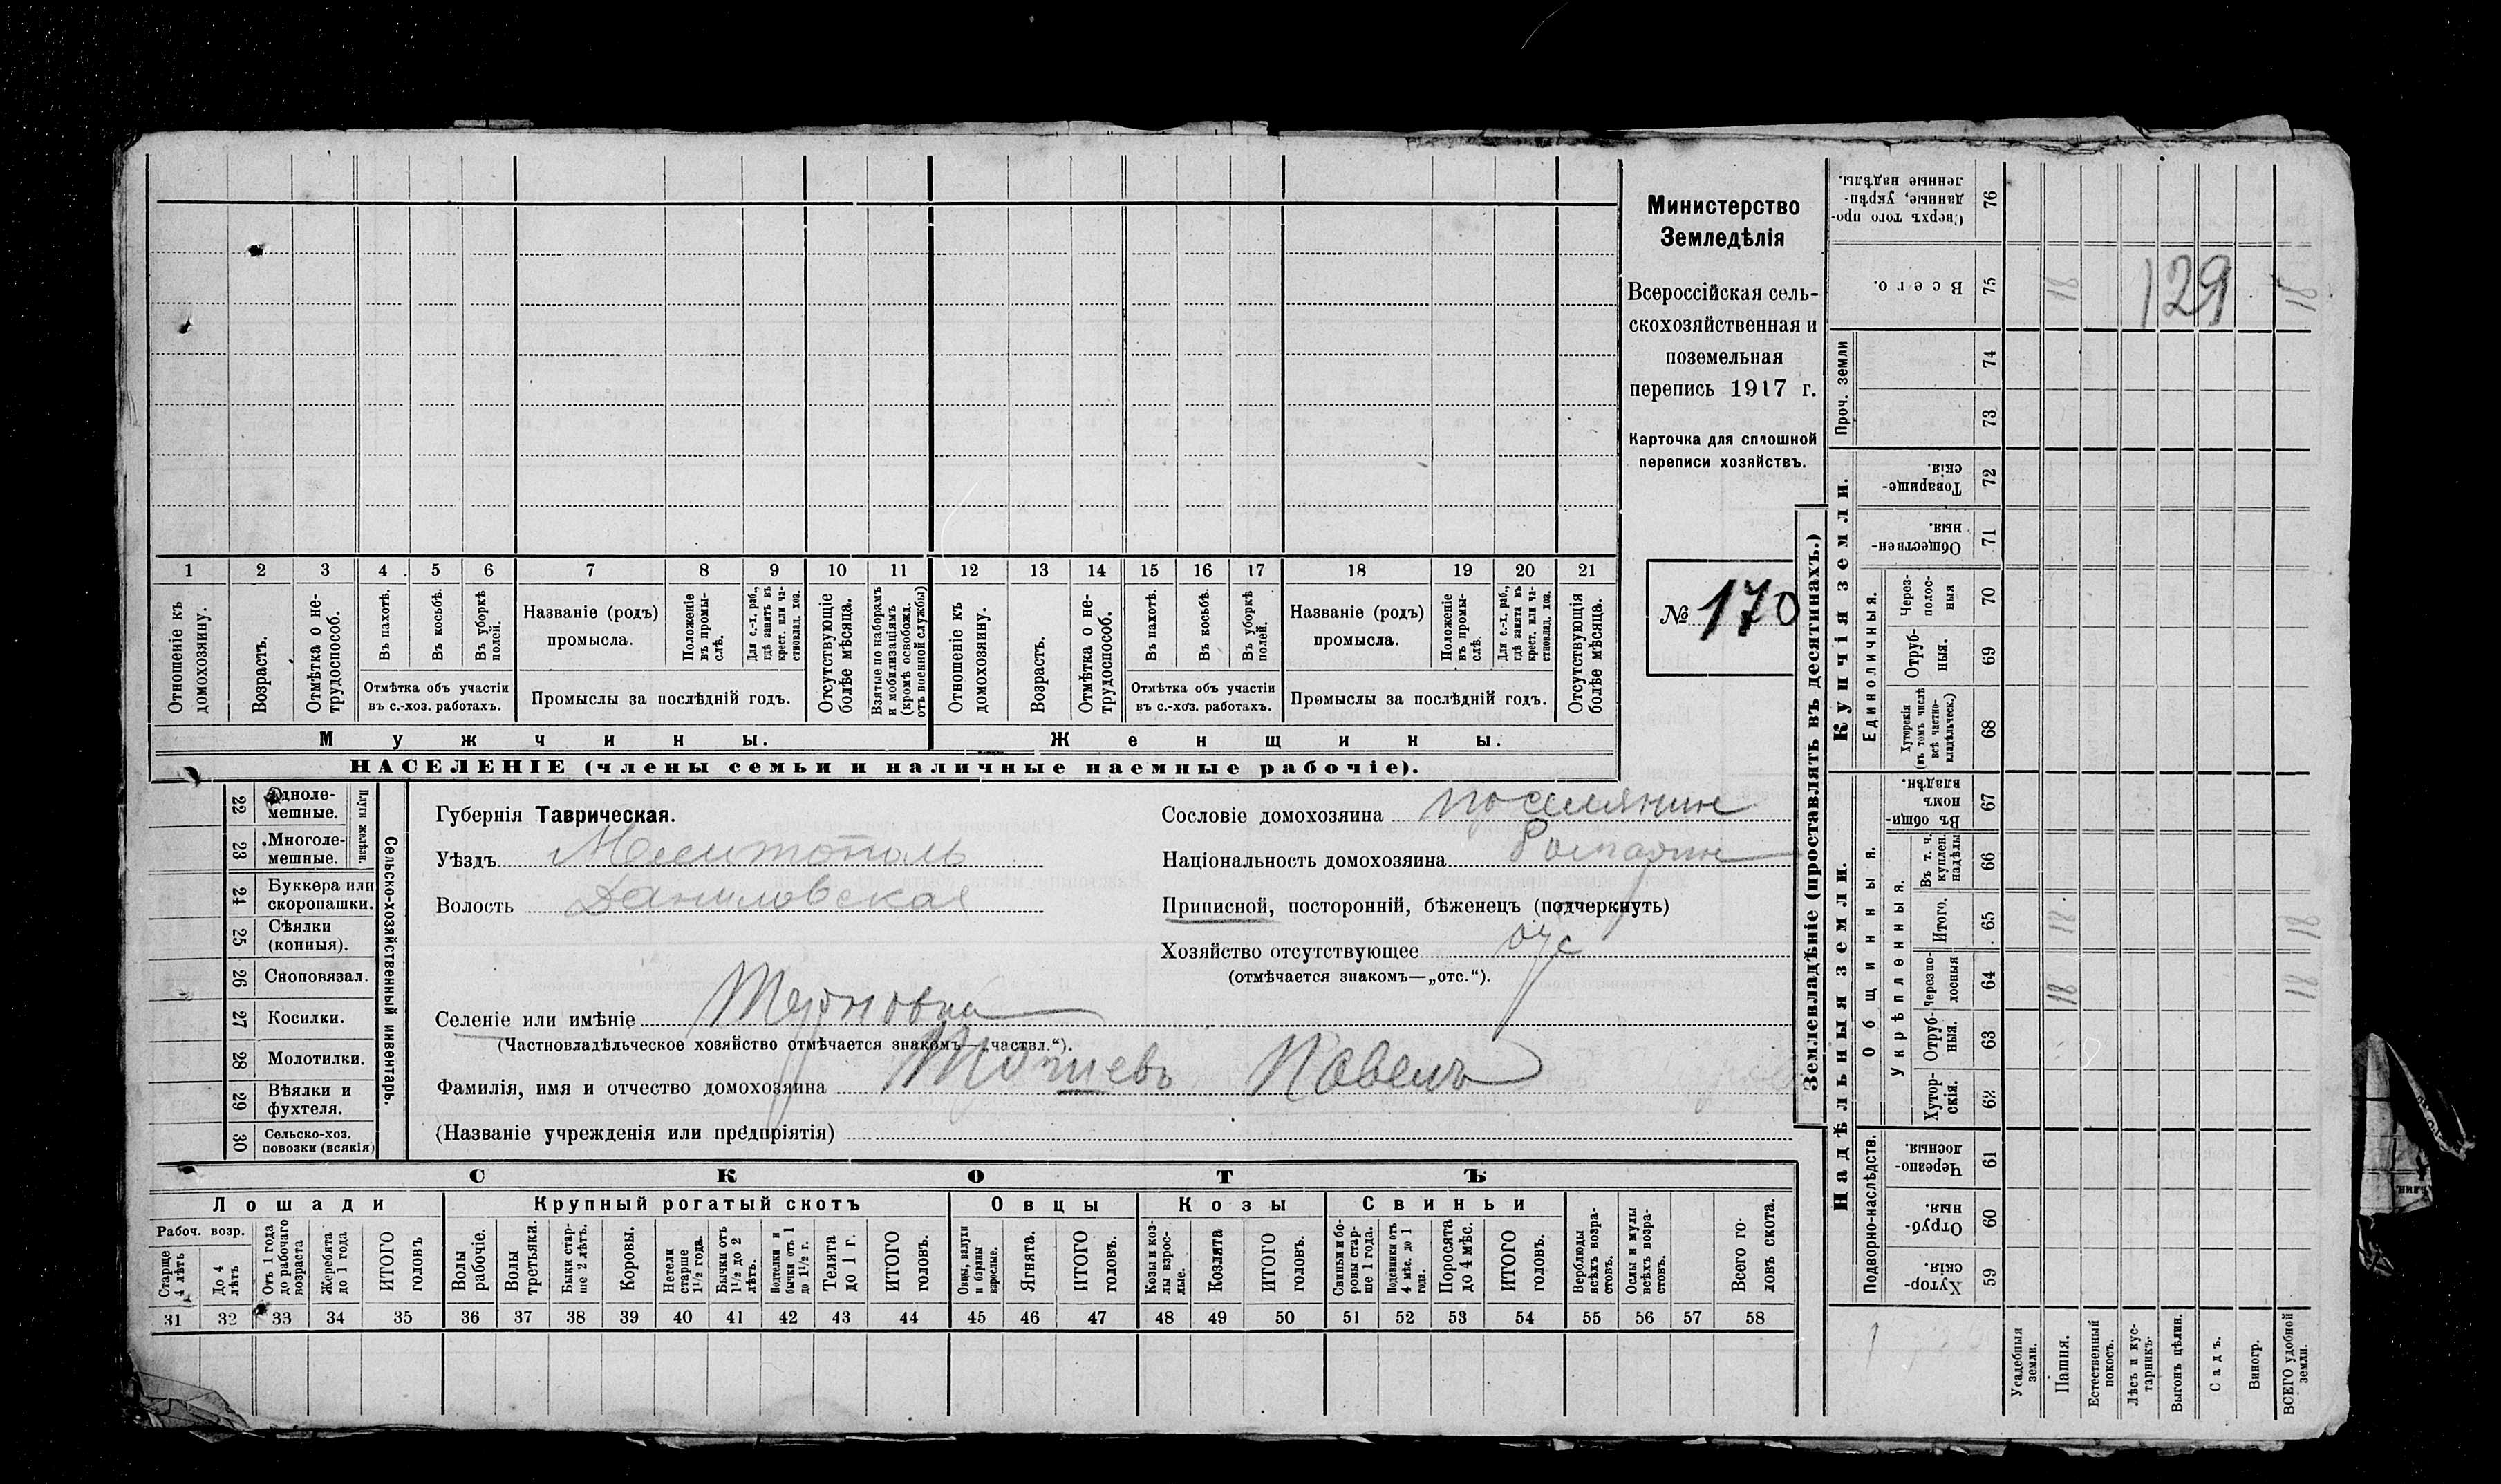 Министерство
Земледѣлія
Всероссійская сель-
скохозяйственная и
поземельная
перепись 1917 г.
Карточка для сплошной
переписи хозяйствъ.
№ 170
1 2 3 4 5 6 7 8 9 10 11 12 13 14 15 16 17 18 19 20 21
Отношеніе къ домохозяину.
Возрастъ.
Отмѣтка о не-трудоспособ.
Въ пахотѣ.
Въ косьбѣ.
Въ уборкѣ полей.
Отмѣтка объ участіи въ с.-хоз. работахъ.
Названіе (родъ) промысла.
Положеніе въ промы-слѣ.
Для с.-х. раб., гдѣ занятъ въ крест. или ча-стновлад. хоз.
Промыслы за послѣдній годъ.
Отсутствующіе болѣе мѣсяца.
Взятые по наборамъ и мобилизаціямъ (кромѣ освобожд. отъ военной службы)
Отношеніе къ домохозяину.
Возрастъ.
Отмѣтка о не-трудоспособ.
Въ пахотѣ.
Въ косьбѣ.
Въ уборкѣ полей.
Отмѣтка объ участіи въ с.-хоз. работахъ.
Названіе (родъ) промысла.
Положеніе въ промы-слѣ.
Для с.-х. раб., гдѣ занята въ крест. или ча-стновлад. хоз.
Промыслы за послѣдній годъ.
Отсутствующія болѣе мѣсяца.
Мужчины. Женщины.
НАСЕЛЕНІЕ (члены семьи и наличные наемные рабочіе).
22 Одноле-мешные.
23 Многоле-мешные.
Плуги желѣзн.
24 Буккера или скоропашки.
25 Сѣялки (конныя).
26 Сноповязал.
27 Косилки.
28 Молотилки.
29 Вѣялки и фухтеля.
30 Сельско-хоз. повозки (всякія)
Сельско-хозяйственный инвентарь.
Губернія Таврическая.
Уѣздъ Мелитополь
Волость Даниловская
Сословіе домохозяина поселянин
Національность домохозяина
Приписной, посторонній, бѣженецъ (подчеркнуть)
Хозяйство отсутствующее
(отмѣчается знакомъ—„отс.“).
Селеніе или имѣніе Терновка
(Частновладѣльческое хозяйство отмѣчается знакомъ—„частвл.“).
Фамилія, имя и отчество домохозяина Павелъ
(Названіе учрежденія или предпріятія)
СКОТЪ
Лошади Крупный рогатый скотъ Овцы Козы Свиньи
Рабоч. возр.
Старше 4 лѣтъ
До 4 лѣтъ
Отъ 1 года до рабочаго возраста
Жеребята до 1 года
ИТОГО головъ
Волы рабочіе.
Волы третьяки.
Быки стар-ше 2 лѣтъ.
Коровы.
Нетели старше 1½ года.
Бычки отъ 1½ до 2 лѣтъ.
Подтелки и бычки отъ 1 до 1½ г.
Телята до 1 г.
ИТОГО головъ.
Овцы, валухи и бараны взрослые.
Ягнята.
ИТОГО головъ.
Козы и коз-лы взрос-лые.
Козлята
ИТОГО головъ.
Свиньи и бо-ровы стар-ше 1 года.
Подсвинки отъ 4 мѣс. до 1 года.
Поросята до 4 мѣс.
ИТОГО головъ.
Верблюды всѣхъ возра-стовъ.
Ослы и мулы всѣхъ возра-стовъ.
Всего го-ловъ скота.
31 32 33 34 35 36 37 38 39 40 41 42 43 44 45 46 47 48 49 50 51 52 53 54 55 56 57 58
Землевладѣніе (проставлять въ десятинахъ.)
76 Сверхъ того про-данные, укрѣп-ленные надѣлы.
75 Всего. 18 129 18
Купчія земли.
Проч. земли
74
73
72 Товарище-скія.
71 Обществен-ныя.
Единоличныя.
70 Через-полос-ныя
69 Отруб-ныя.
68 Хуторскія (въ томъ числѣ всѣ частно-владѣльческ.)
Надѣльныя земли.
Общинныя.
67 Въ общин-номъ владѣн.
Укрѣпленныя.
66 Въ т. ч. куплен. надѣлы
65 Итого. 18 18
64 Черезпо-лосныя 18 18
63 Отруб-ныя.
62 Хутор-скія.
Подворно-наслѣдств.
61 Черезпо-лосныя
60 Отруб-ныя.
59 Хутор-скія.
Усадебныя земли.
Пашня.
Естественный покосъ.
Лѣсъ и кус-тарникъ.
Выгонъ цѣлин.
Садъ.
Виногр.
ВСЕГО удобной земли.